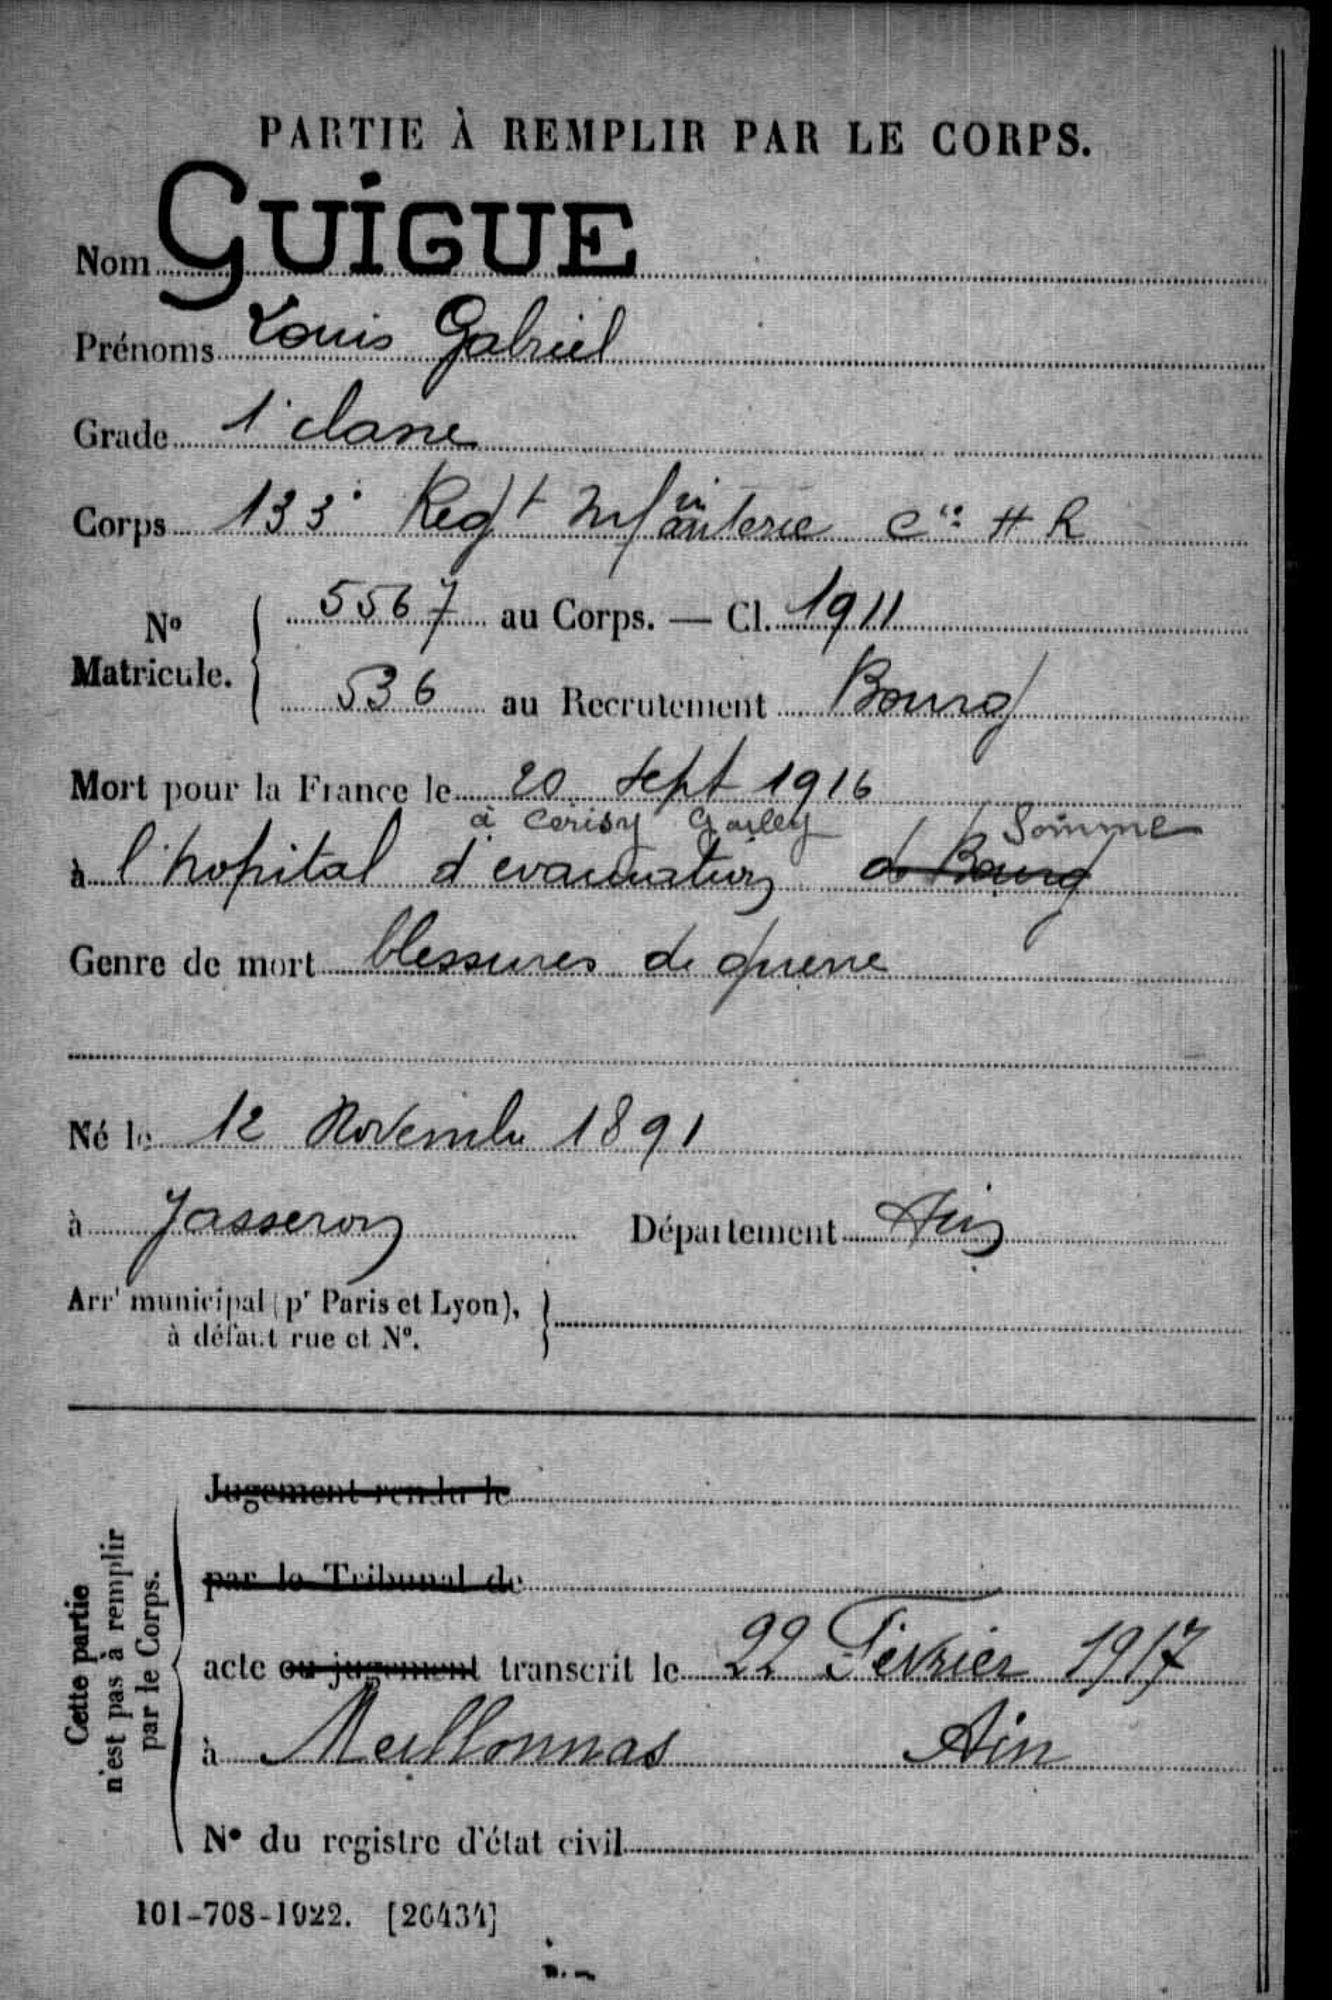 PARTIE À REMPLIR PAR LE CORPS.
Nom GUIGUE
Prénoms Louis Gabriel
Grade 1e classe
Corps 133e Regt Infanterie Cie H R
No Matricule.
5567 au Corps. — Cl. 1911
536 au Recrutement Bourg
Mort pour la France le 20 Sept 1916
à Cerisy Gailly Somme
à l'hopital d'evacuation de Bourg
Genre de mort blessures de guerre
Né le 12 Novembre 1891
à Jasseron Département Ain
Arrt municipal (pr Paris et Lyon),
à défaut rue et No.
Cette partie
n'est pas à remplir
par le Corps.
Jugement rendu le
par le Tribunal de
acte ou jugement transcrit le 22 Février 1917
à Meillonnas Ain
No du registre d'état civil
101-708-1922. [26434]